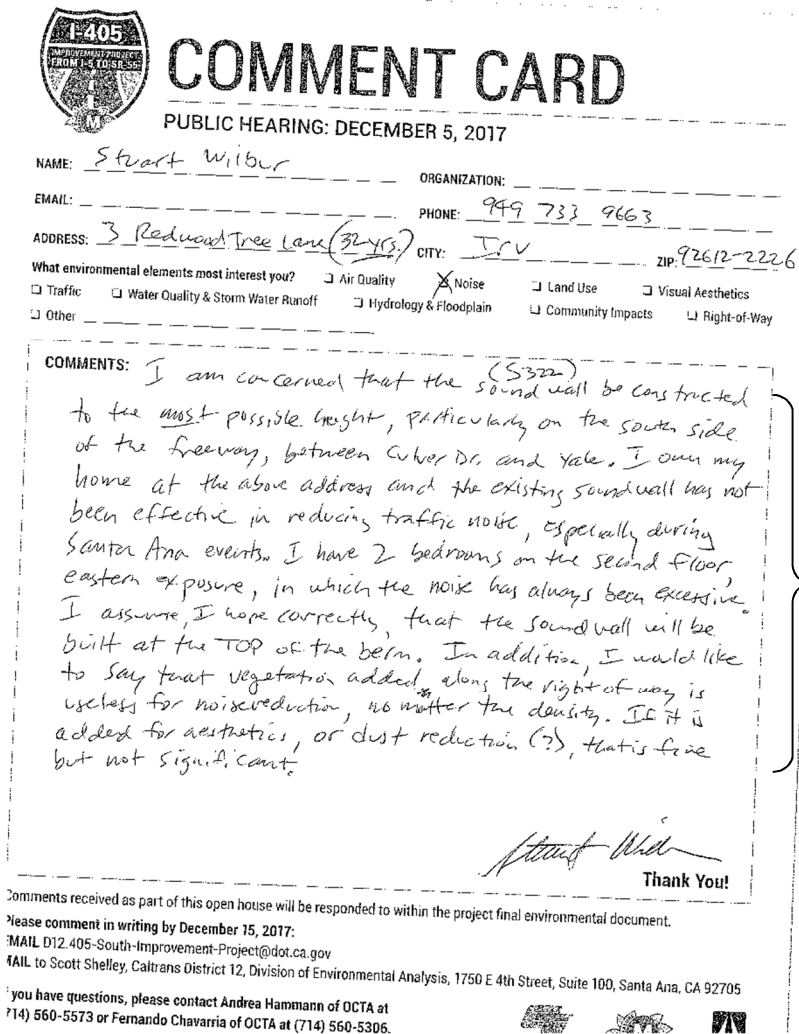 I-405
IMPROVEMENT PROJECT
FROM I-5 TO SR-55
COMMENT CARD
PUBLIC HEARING: DECEMBER 5, 2017
NAME: Stuart Wilbur
ORGANIZATION:
EMAIL:
PHONE: 949 733 9663
ADDRESS: 3 Redwood Tree Lane (32 yrs.) CITY: Irv ZIP: 92612-2226
What environmental elements most interest you? Air Quality Noise Land Use Visual Aesthetics
Traffic Water Quality & Storm Water Runoff Hydrology & Floodplain Community Impacts Right-of-Way
Other
COMMENTS: I am concerned that the (S322) sound wall be constructed
to the most possible height, particularly on the south side
of the freeway, between Culver Dr. and Yale. I own my
home at the above address and the existing soundwall has not
been effective in reducing traffic noise, especially during
Santa Ana events. I have 2 bedrooms on the second floor,
eastern exposure, in which the noise has always been excessive.
I assume, I hope correctly, that the soundwall will be
built at the TOP of the berm. In addition, I would like
to say that vegetation added along the right of way is
useless for noise reduction, no matter the density. If it is
added for aesthetics, or dust reduction (?), that is fine
but not significant.
Thank You!
Comments received as part of this open house will be responded to within the project final environmental document.
Please comment in writing by December 15, 2017:
EMAIL D12.405-South-Improvement-Project@dot.ca.gov
MAIL to Scott Shelley, Caltrans District 12, Division of Environmental Analysis, 1750 E 4th Street, Suite 100, Santa Ana, CA 92705
you have questions, please contact Andrea Hammann of OCTA at
714) 560-5573 or Fernando Chavarria of OCTA at (714) 560-5306.